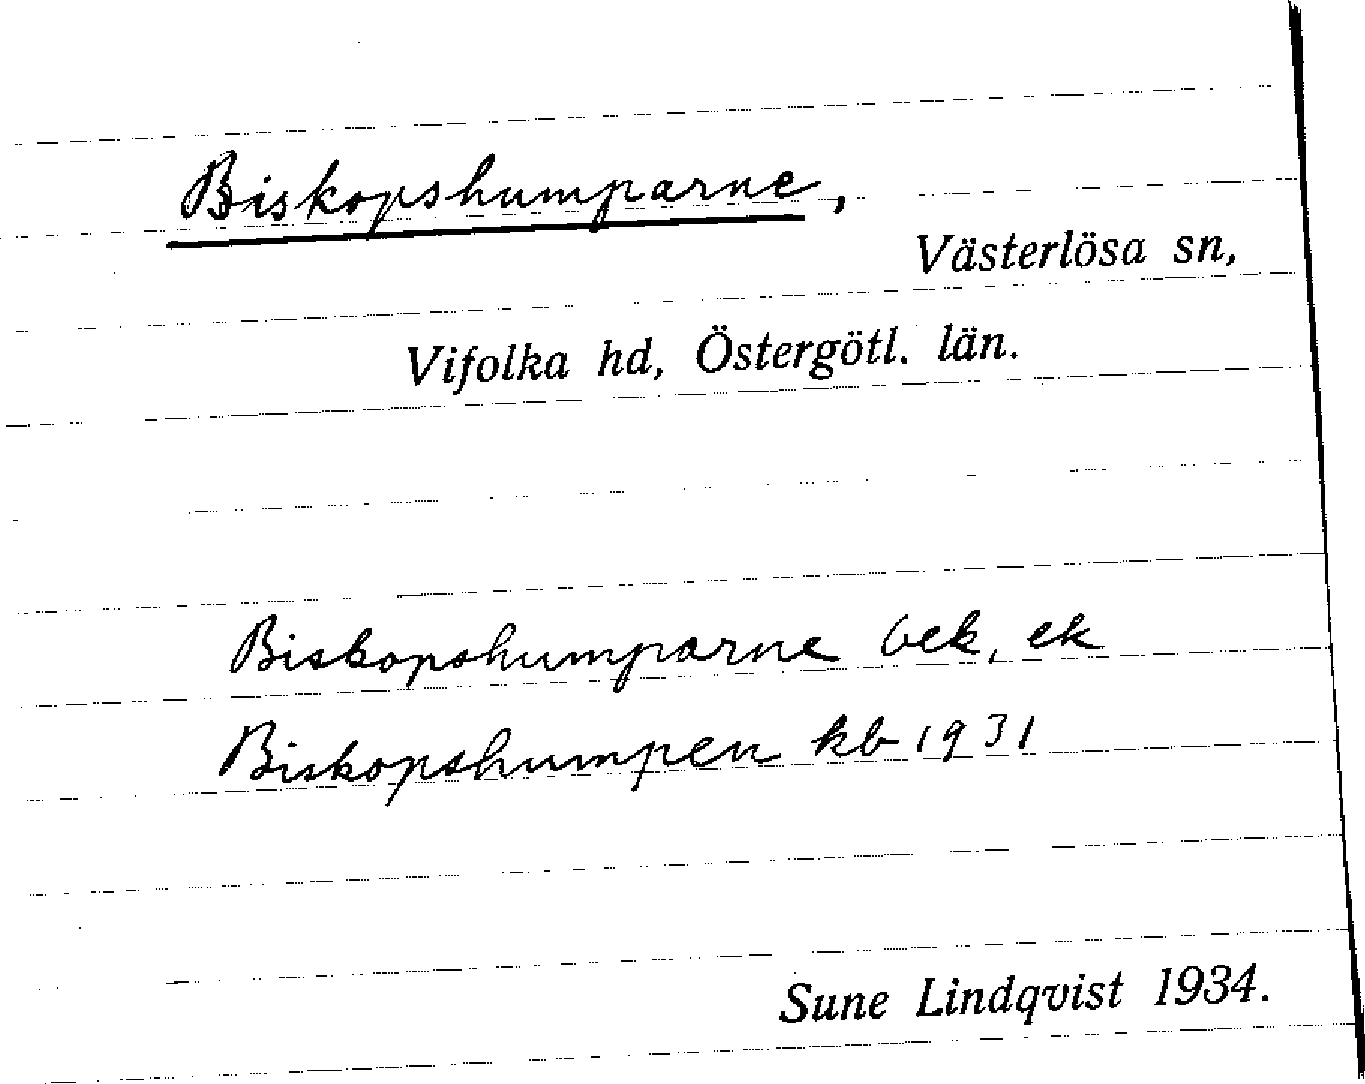 Biskopshumparne,
Västerlösa sn,
Vifolka hd, Östergötl. län.
Biskopshumparne bek, ek
Biskopshumpen kb 1931
Sune Lindqvist 1934.